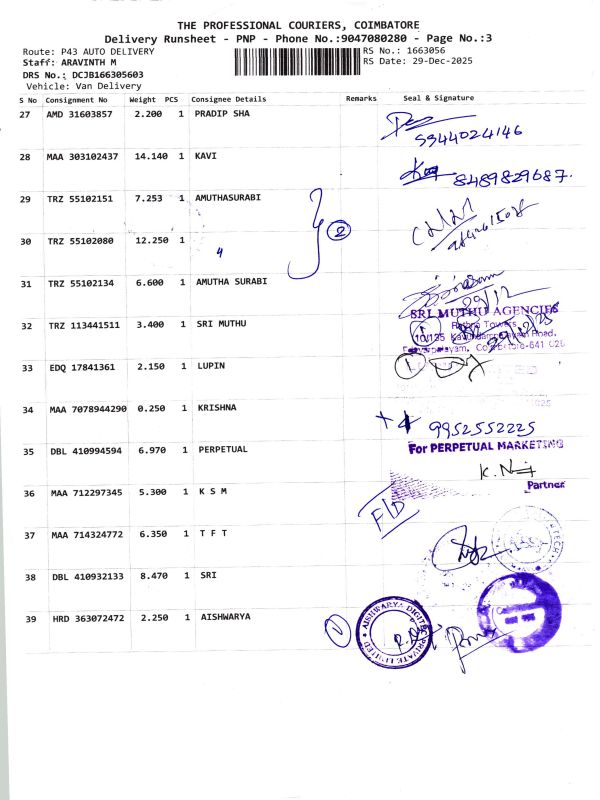 THE PROFESSIONAL COURIERS, COIMBATORE
Delivery Runsheet - PNP - Phone No.:9047080280 - Page No.:3
Route: P43 AUTO DELIVERY RS No.: 1663056
Staff: ARAVINTH M RS Date: 29-Dec-2025
DRS No.: DCJB166305603
Vehicle: Van Delivery
S No Consignment No Weight PCS Consignee Details Remarks Seal & Signature
27 AMD 31603857 2.200 1 PRADIP SHA
5944024146
28 MAA 303102437 14.140 1 KAVI
8489829687.
29 TRZ 55102151 7.253 1 AMUTHASURABI
2
30 TRZ 55102080 12.250 1
4
31 TRZ 55102134 6.600 1 AMUTHA SURABI
29/12
SRI MUTHU AGENCIES
32 TRZ 113441511 3.400 1 SRI MUTHU
1
Towers
10/135 Road.
29/12/25
641
33 EDQ 17841361 2.150 1 LUPIN
1
34 MAA 7078944290 0.250 1 KRISHNA
9952552225
35 DBL 410994594 6.970 1 PERPETUAL
For PERPETUAL MARKETING
Partner
36 MAA 712297345 5.300 1 K S M
F/D
37 MAA 714324772 6.350 1 T F T
38 DBL 410932133 8.470 1 SRI
39 HRD 363072472 2.250 1 AISHWARYA
1
AISHWARYA DIGITEC PRIVATE LIMITED